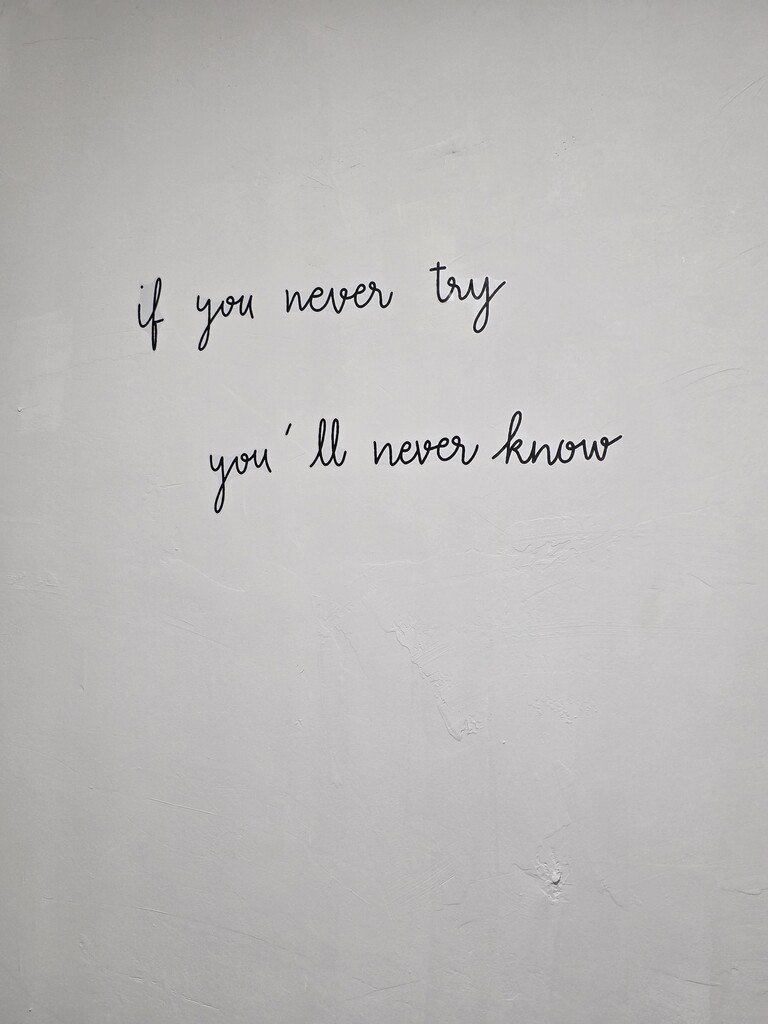 if you never try
you'll never know